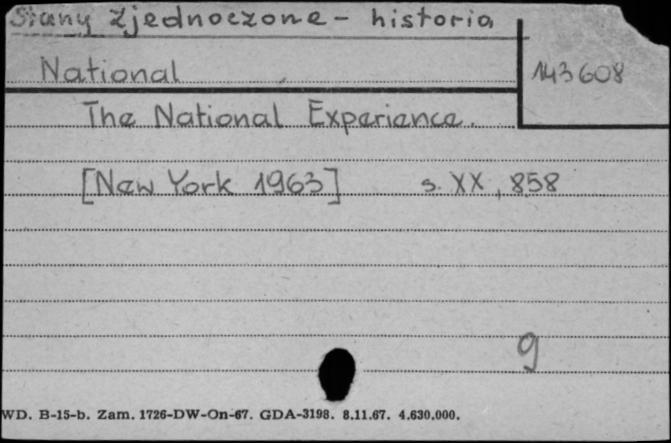 Stany Zjednoczone - historia
National
143608
The National Experience.
[New York 1963] s. XX, 858
9
WD. B-15-b. Zam. 1726-DW-On-67. GDA-3198. 8.11.67. 4.630.000.